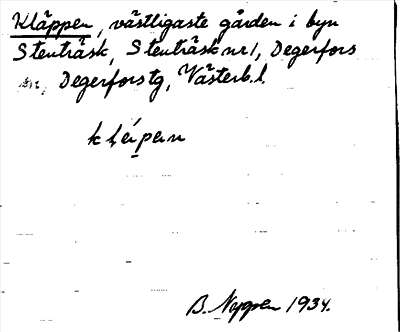 Kläppen, västligaste gården i byn
Stenträsk, Stenträsk nr 1, Degerfors
sn, Degerfors tg, Västerb. l.
kléipen
B. Nyppen 1934.